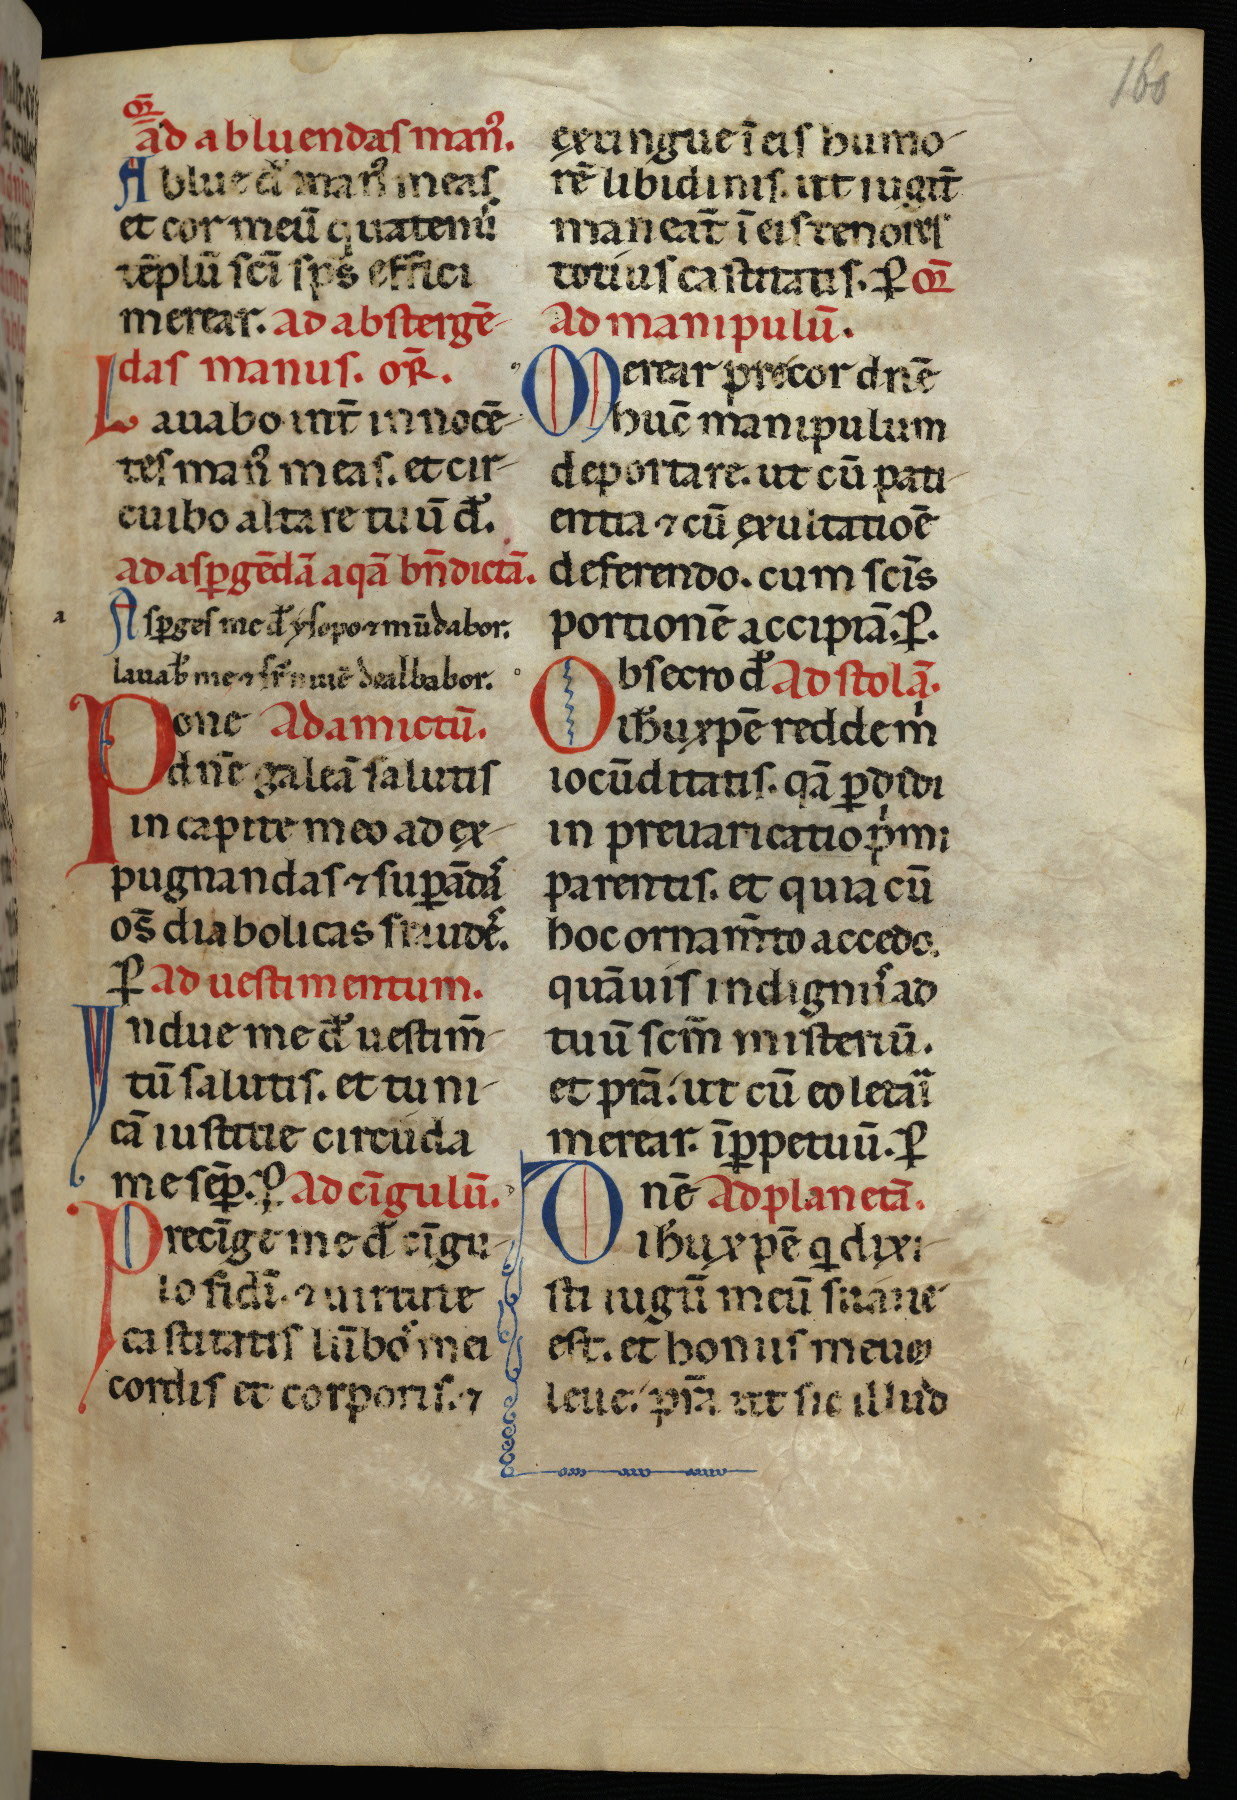 160
or̄
ad abluendas man⁹.
Ablue d̄s man⁹ meas
et cor meū quatenus
tēplū sc̄i sp̄s effici
merear. Ad abstergē
das manus. or̄.
Lauabo int̄ innocē
tes man⁹ meas. et cir
cuibo altare tuū d̄s.
ad aspgēdā aqā bn̄dictā.
a
Aspges me d̄s ysopo ⁊ mūdabor.
lauab̄ me ⁊ dealbabor.
Pone Ad amictū.
dn̄e galeā salutis
in capite meo ad ex
pugnandas ⁊ supādas
os̄ diabolicas fraudes.
P Ad uestimentum.
Indue me d̄s uestim̄
tū salutis. et tuni
cā iustitie circūda
me sēp. P Ad cīgulū.
Precīge me d̄s cīgu
lo fidī. ⁊ uirtute
castitatis lūbos mei
cordis et corporis. ⁊
extingue ī eis humo
rē libidinis. ut iugit̄
maneat̄ ī eis tenor
totius castitatis. P or̄
Ad manipulū.
Merear precor dn̄e
huc̄ manipulum
deportare. ut cū pati
entia ⁊ cū exultatioē
deferendo. cum sc̄is
portionē accipiā. P.
Obsecro d̄s Ad stolā.
ih̄u xp̄e redde m
iocūditatis. qā pdidi
in preuaricatio pmi
parentis. et quia cū
hoc ornam̄to accedo.
quāuis indignus ad
tuū sc̄m misteriū.
et pr̄a. ut cū eo letai
merear. īppetuū. P
Dnē Ad planetā.
ih̄u xp̄e q dixi
sti iugū meū suaue
est. et honus meu
leue. pr̄a ut sic illud